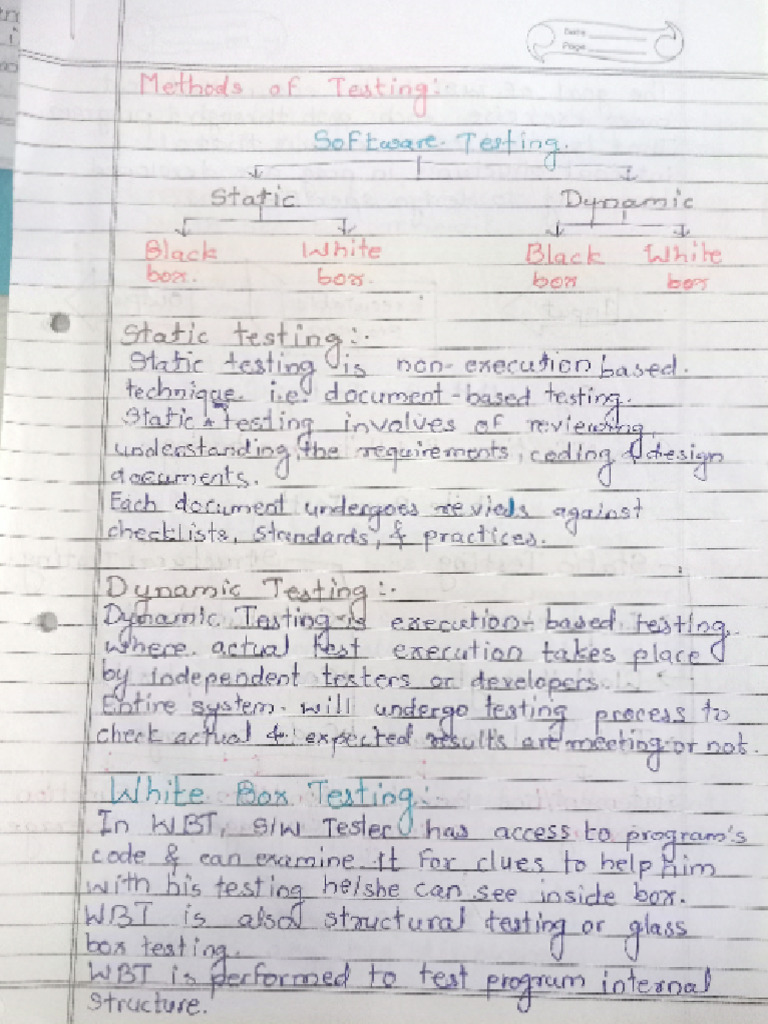 Date
Page
Methods of Testing:
Software Testing.
Static Dynamic
Black White Black White
box. box. box box
Static testing:-
Static testing is non-execution based.
technique. i.e. document-based testing.
Static testing involves of reviewing,
understanding, the requirements, coding & design
documents.
Each document undergoes against
checklists, standards, & practices.
Dynamic Testing:-
Dynamic Testing is execution-based testing,
where actual test execution takes place
by independent testers or developers.
Entire system will undergo testing process to
check actual & expected results are meeting or not.
White Box Testing:
In WBT, S/W Tester has access to program's
code & can examine it for clues to help him
with his testing he/she can see inside box.
WBT is also structural testing or glass
box testing.
WBT is performed to test program internal
structure.